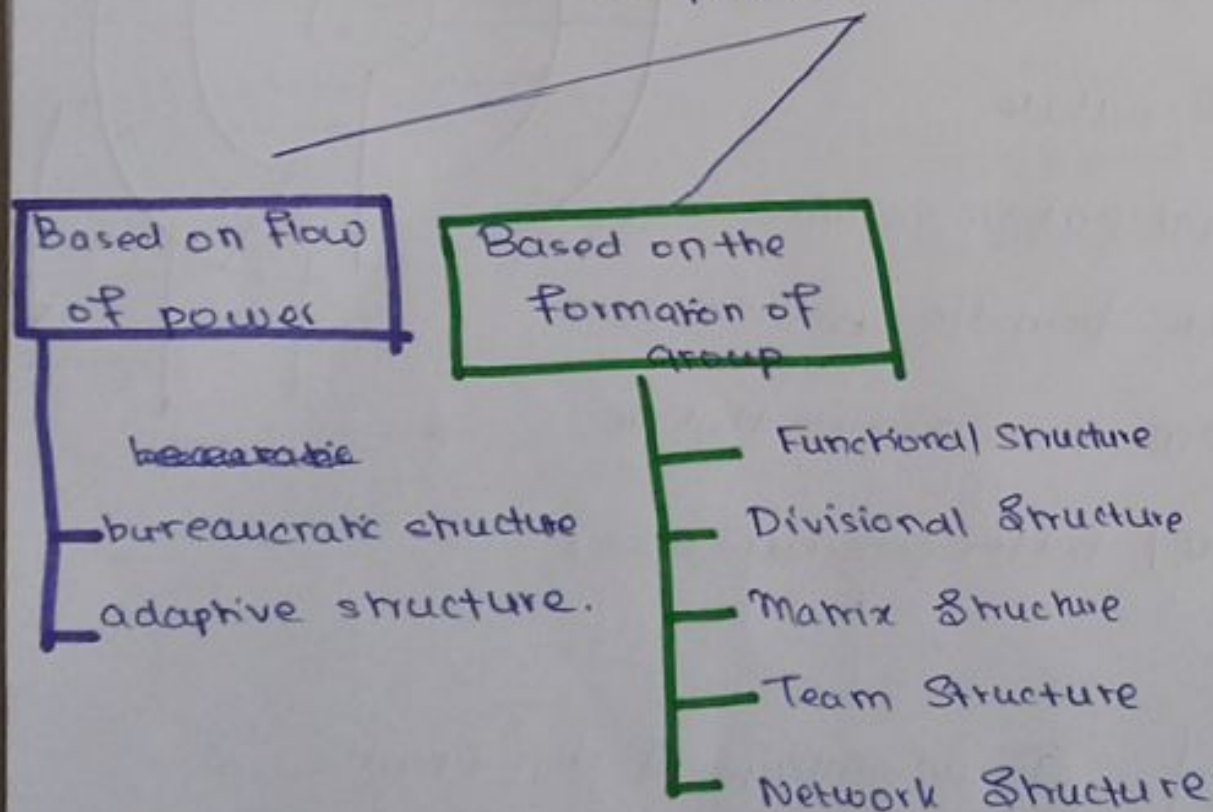 Based on flow
of power
bureaucratic structure
adaptive structure.
Based on the
formation of
group
Functional Structure
Divisional Structure
Matrix Structure
Team Structure
Network Structure